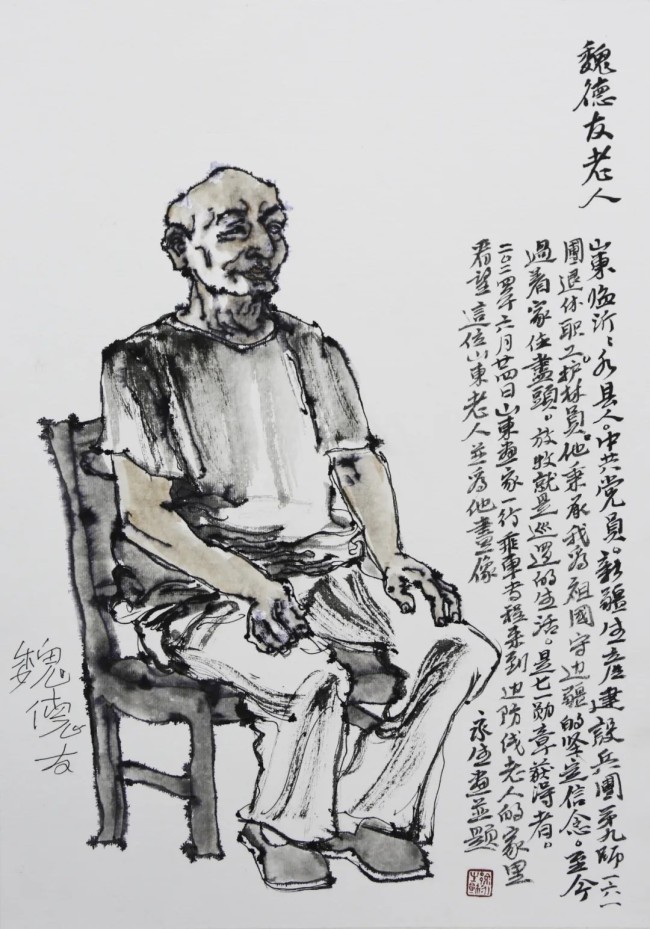 魏德友老人
山东临沂沂水县人。中共党员。新疆生产建设兵團第九师一六一
團退休职工护林员。他秉承我为祖國守边疆的坚定信念。至今
過着家住盡頭。放牧就是巡邏的生活。是七一勋章获得者。
二〇二四年六月廿四日山东画家一行乘車专程来到边防线老人的家里
看望這位山東老人並為他畫像
永生画並题
魏德友